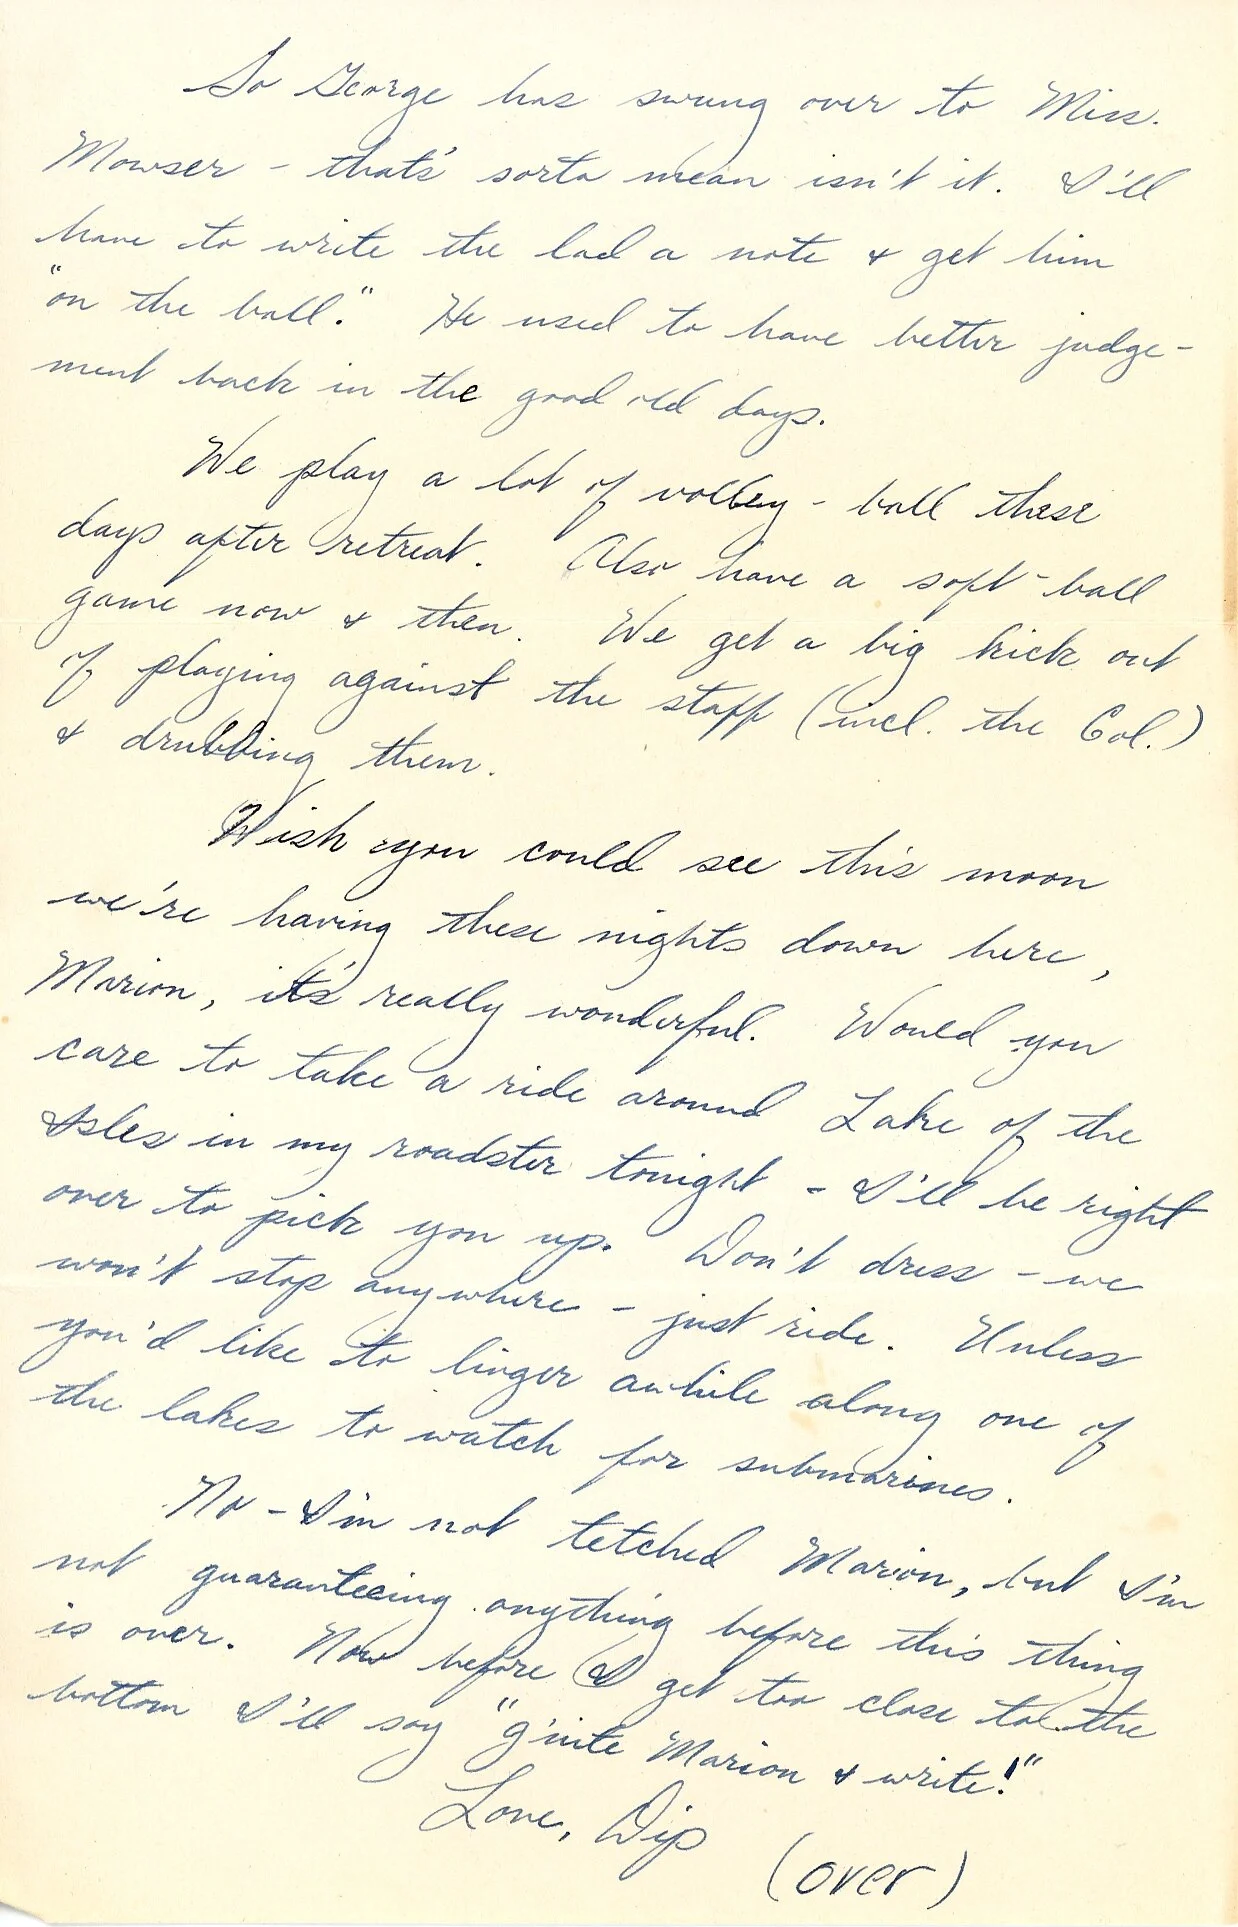 So George has swung over to Miss.
Mowser - that's sorta mean isn't it. I'll
have to write the lad a note & get him
"on the ball." He used to have better judge-
ment back in the good old days.
We play a lot of volley - ball these
days after retreat. Also have a soft-ball
game now & then. We get a big kick out
of playing against the staff (incl. the Col.)
& drubbing them.
Wish you could see this moon
we're having these nights down here,
Marion, it's really wonderful. Would you
care to take a ride around Lake of the
Isles in my roadster tonight - I'll be right
over to pick you up. Don't dress - we
won't stop anywhere - just ride. Unless
you'd like to linger awhile along one of
the lakes to watch for submarines.
No - I'm not tetched Marion, but I'm
not guaranteeing anything before this thing
is over. Now before I get too close to the
bottom I'll say "g'nite Marion & write!"
Love, Dip
(over)